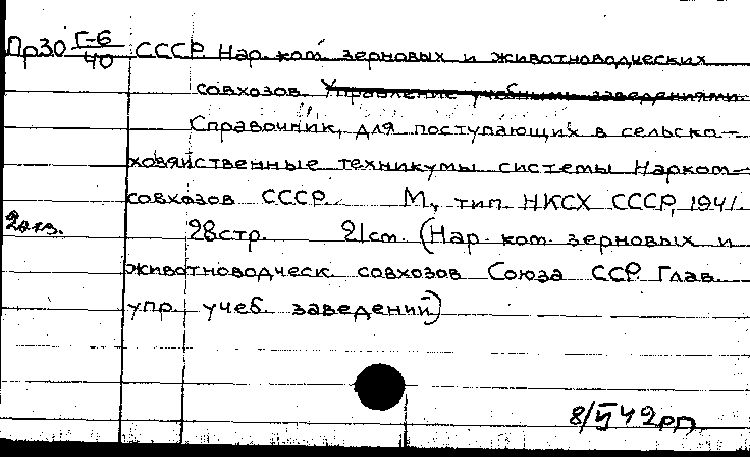 Пр30 Г-6/40 СССР. Нар. ком. зерновых и животноводческих
совхозов. Управление учебными заведениями
Справочник, для поступающих в сельско-
хозяйственные техникумы системы Нарком-
совхозов СССР. М, тип. НКСХ СССР, 1941.
2экз. 28стр. 21см. (Нар. ком. зерновых и
животноводческ. совхозов Союза ССР. Глав.
упр. учеб. заведений)
8/VI 42